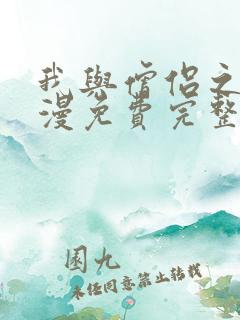 我與僧侶之
漫免費完整
園九
未经同意禁止转载